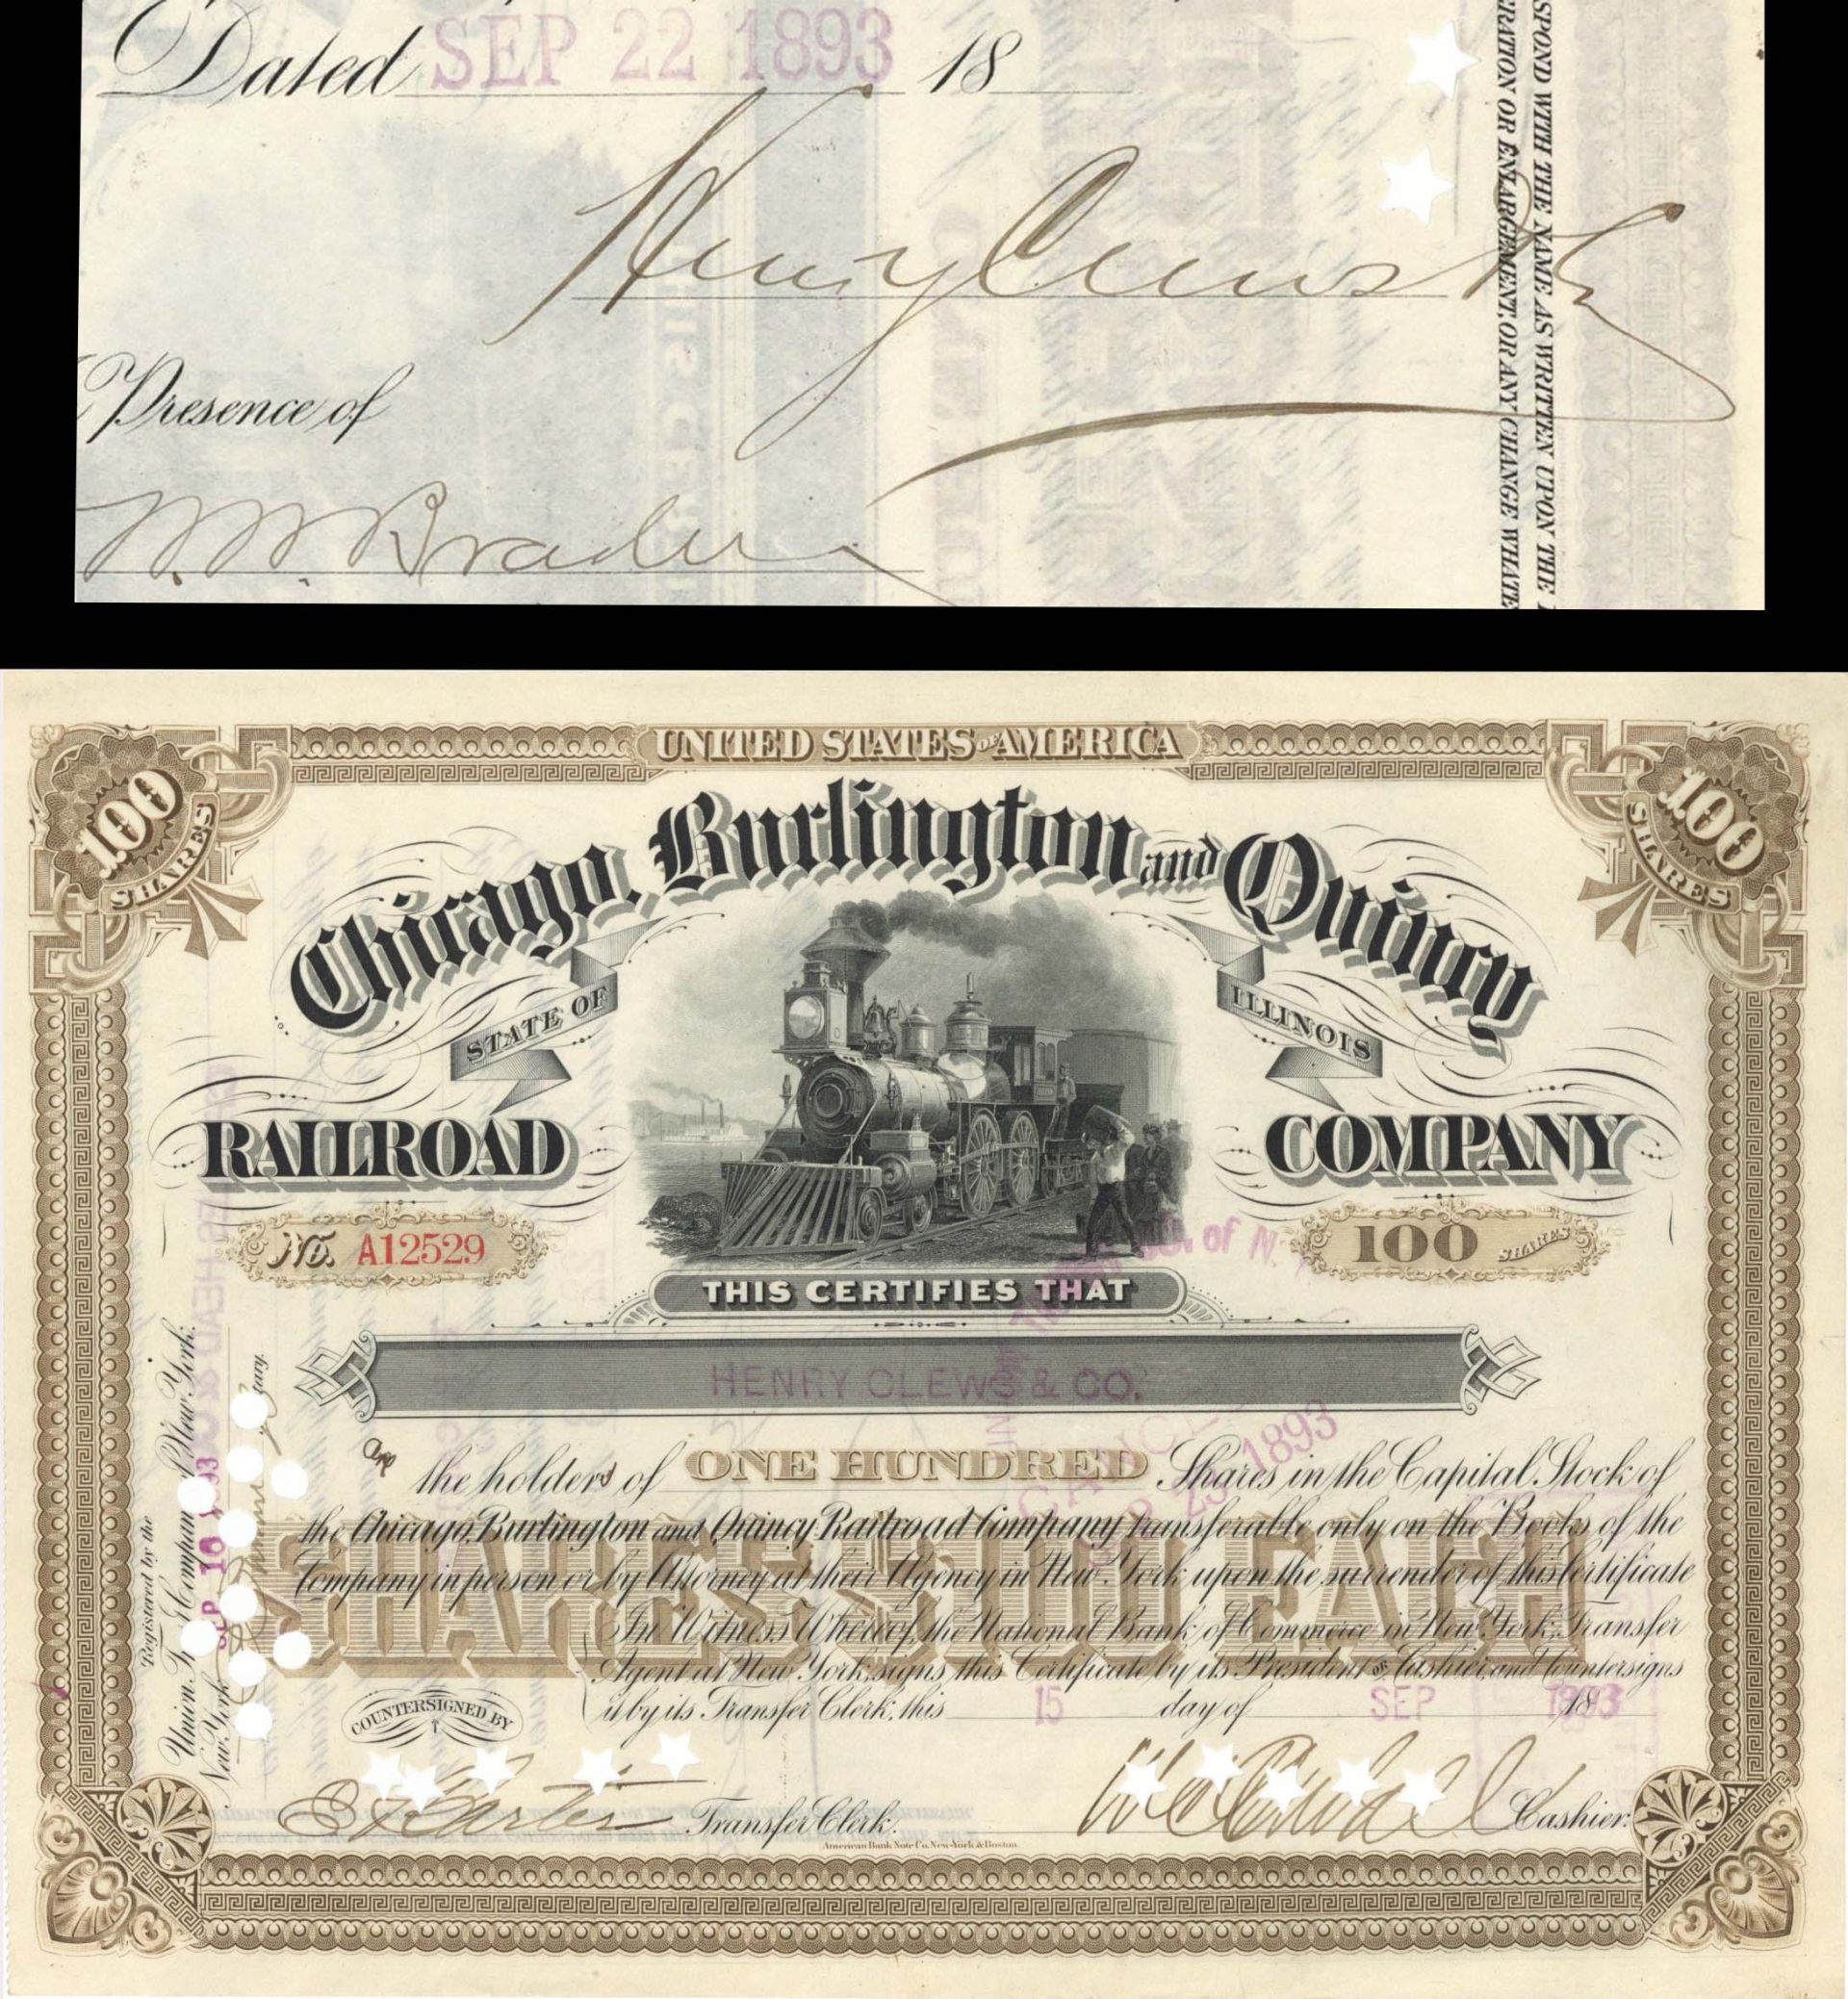 Dated SEP 22 1893 18
Henry Clews & Co
Presence of
SPOND WITH THE NAME AS WRITTEN UPON THE
ERATION OR ENLARGEMENT, OR ANY CHANGE WHATE
UNITED STATES OF AMERICA
100 SHARES
100 SHARES
Chicago, Burlington and Quincy
STATE OF ILLINOIS
RAILROAD COMPANY
No. A12529
100 SHARES
THIS CERTIFIES THAT
HENRY CLEWS & CO.
are the holders of ONE HUNDRED Shares in the Capital Stock of
the Chicago, Burlington and Quincy Railroad Company transferable only on the Books of the
Company in person or by Attorney at their Agency in New York upon the surrender of this Certificate
SHARES $100 EACH
In Witness Whereof, the National Bank of Commerce in New York, Transfer
Agent at New York, signs this Certificate by its President or Cashier, and Countersigns
it by its Transfer Clerk, this 15 day of SEP 1893 18
COUNTERSIGNED BY
Transfer Clerk.
Cashier.
American Bank Note Co. New York & Boston.
Registered by the
Union Company of New York.
New York
CANCELLED
1893